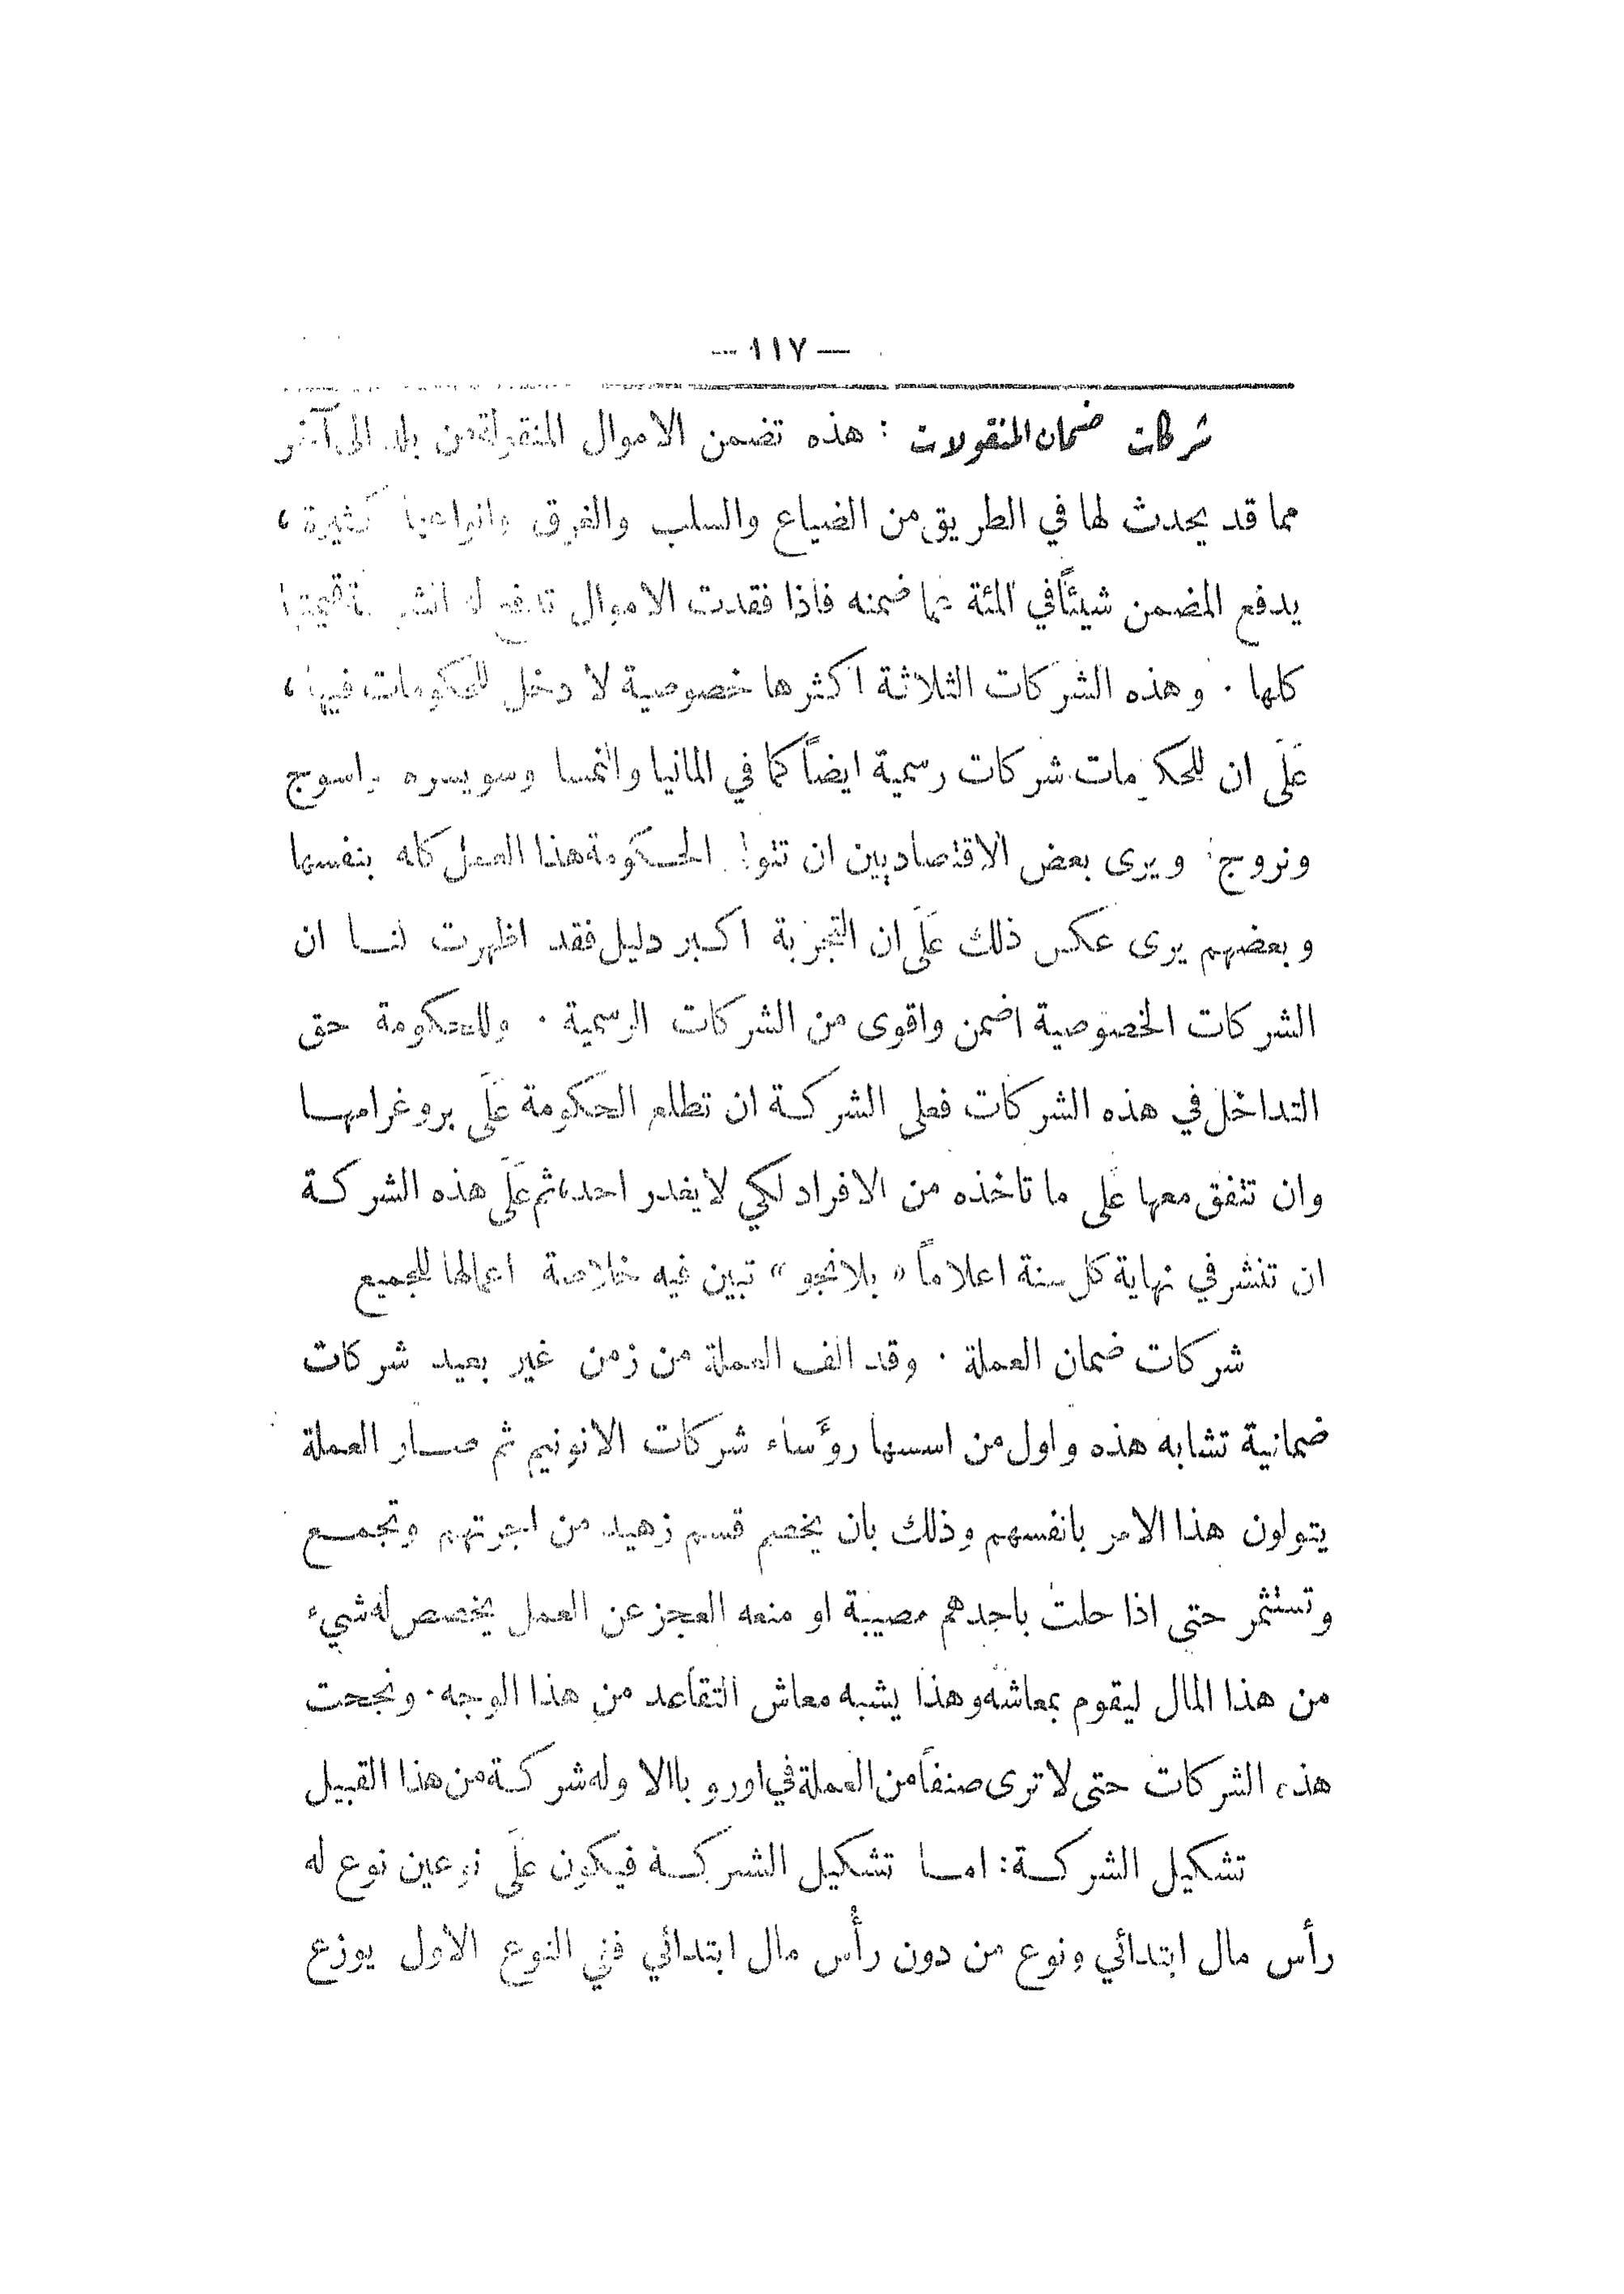 — ١١٧ —
شركات ضمان المنقولات : هذه تضمن الاموال المنقولة من بلد الى آخر
مما قد يحدث لها في الطريق من الضياع والسلب والغرق وانواعها كثيرة ،
يدفع المضمن شيئاً في المئة عما ضمنه فاذا فقدت الاموال تدفع له الشركة قيمتها
كلها . وهذه الشركات الثلاثة اكثرها خصوصية لا دخل للحكومات فيها ،
عَلَى ان للحكومات شركات رسمية ايضاً كما في المانيا والنمسا وسويسره واسوج
ونروج ويرى بعض الاقتصاديين ان تتولى الحكومة هذا العمل كله بنفسها
وبعضهم يرى عكس ذلك عَلَى ان التجربة اكبر دليل فقد اظهرت لنا ان
الشركات الخصوصية اضمن واقوى من الشركات الرسمية . وللحكومة حق
التداخل في هذه الشركات فعلى الشركة ان تطلع الحكومة عَلَى بروغرامها
وان تتفق معها عَلَى ما تاخذه من الافراد لكي لا يغدر احد، ثم عَلَى هذه الشركة
ان تنشر في نهاية كل سنة اعلاماً « بلانجو » تبين فيه خلاصة اعمالها للجميع
شركات ضمان العملة . وقد الف العملة من زمن غير بعيد شركات
ضمانية تشابه هذه واول من اسسها رؤَساء شركات الانونيم ثم صار العملة
يتولون هذا الامر بانفسهم وذلك بان يخصم قسم زهيد من اجرتهم وتجمع
وتستثمر حتى اذا حلت باحدهم مصيبة او منعه العجز عن العمل يخصص له شيء
من هذا المال ليقوم بمعاشه وهذا يشبه معاش التقاعد من هذا الوجه . ونجحت
هذه الشركات حتى لا ترى صنفاً من العملة في اوروبا الا وله شركة من هذا القبيل
تشكيل الشركة : اما تشكيل الشركة فيكون عَلَى نوعين نوع له
رأس مال ابتدائي ونوع من دون رأس مال ابتدائي ففي النوع الاول يوزع